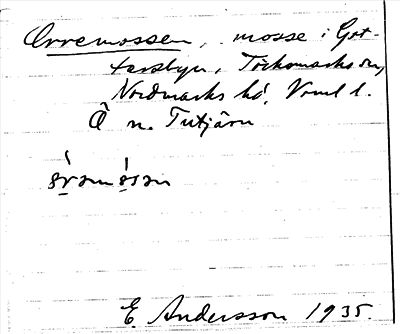 Orremossen, mosse i Got-
tarsbyn, Töcksmarks sn,
Nordmarks hd, Vrml l.
Å n. Tutjärn
E. Andersson 1935.